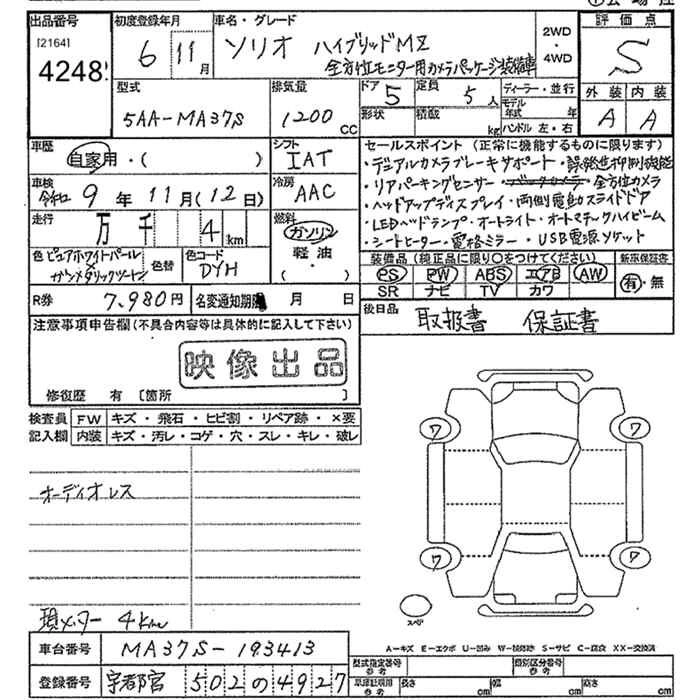 出品番号
[2164]
4248
初度登録年月
6 11月
車名・グレード
ソリオ ハイブリッドMZ
全方位モニター用カメラパッケージ装着車
2WD
・
4WD
評価点
S
外装 内装
A A
型式
5AA-MA37S
排気量
1200 CC
ドア 5
定員 5人
形状
積載 kg
ディーラー・並行
モデル年式 年
ハンドル 左・右
車歴
自家用・( )
シフト
IAT
車検
令和 9年 11月(12日)
冷房
AAC
走行
万 千 4 km
燃料
ガソリン
軽油
( ・ )
色 ピュアホワイトパール
ガンメタリックツートン
色替
色コード
DYH
R券 7,980円
名変通知期限 月 日
セールスポイント(正常に機能するものに限ります)
・デュアルカメラブレーキサポート・誤発進抑制機能
・リアパーキングセンサー・バックカメラ・全方位カメラ
・ヘッドアップディスプレイ・両側電動スライドドア
・LEDヘッドランプ・オートライト・オートマチックハイビーム
・シートヒーター・電格ミラー・USB電源ソケット
装備品(純正品に限り○をつけてください)
PS PW ABS エアB AW
SR ナビ TV カワ
新車保証書
有・無
後日品
取扱書 保証書
注意事項申告欄(不具合内容等は具体的に記入して下さい)
映像出品
修復歴 有 [箇所 ]
検査員記入欄
FW キズ・飛石・ヒビ割・リペア跡・×要
内装 キズ・汚レ・コゲ・穴・スレ・キレ・破レ
オーディオレス
現メーター 4km
ワ ワ
ワ ワ
スペア
A-キズ E-エクボ U-凹み W-補修跡 S-サビ C-腐食 XX-交換済
車台番号 MA37S-193413
登録番号 宇都宮 502の4927
型式指定番号 参考
類別区分番号 参考
車庫証明用 参考
長さ cm 幅 cm 高さ cm